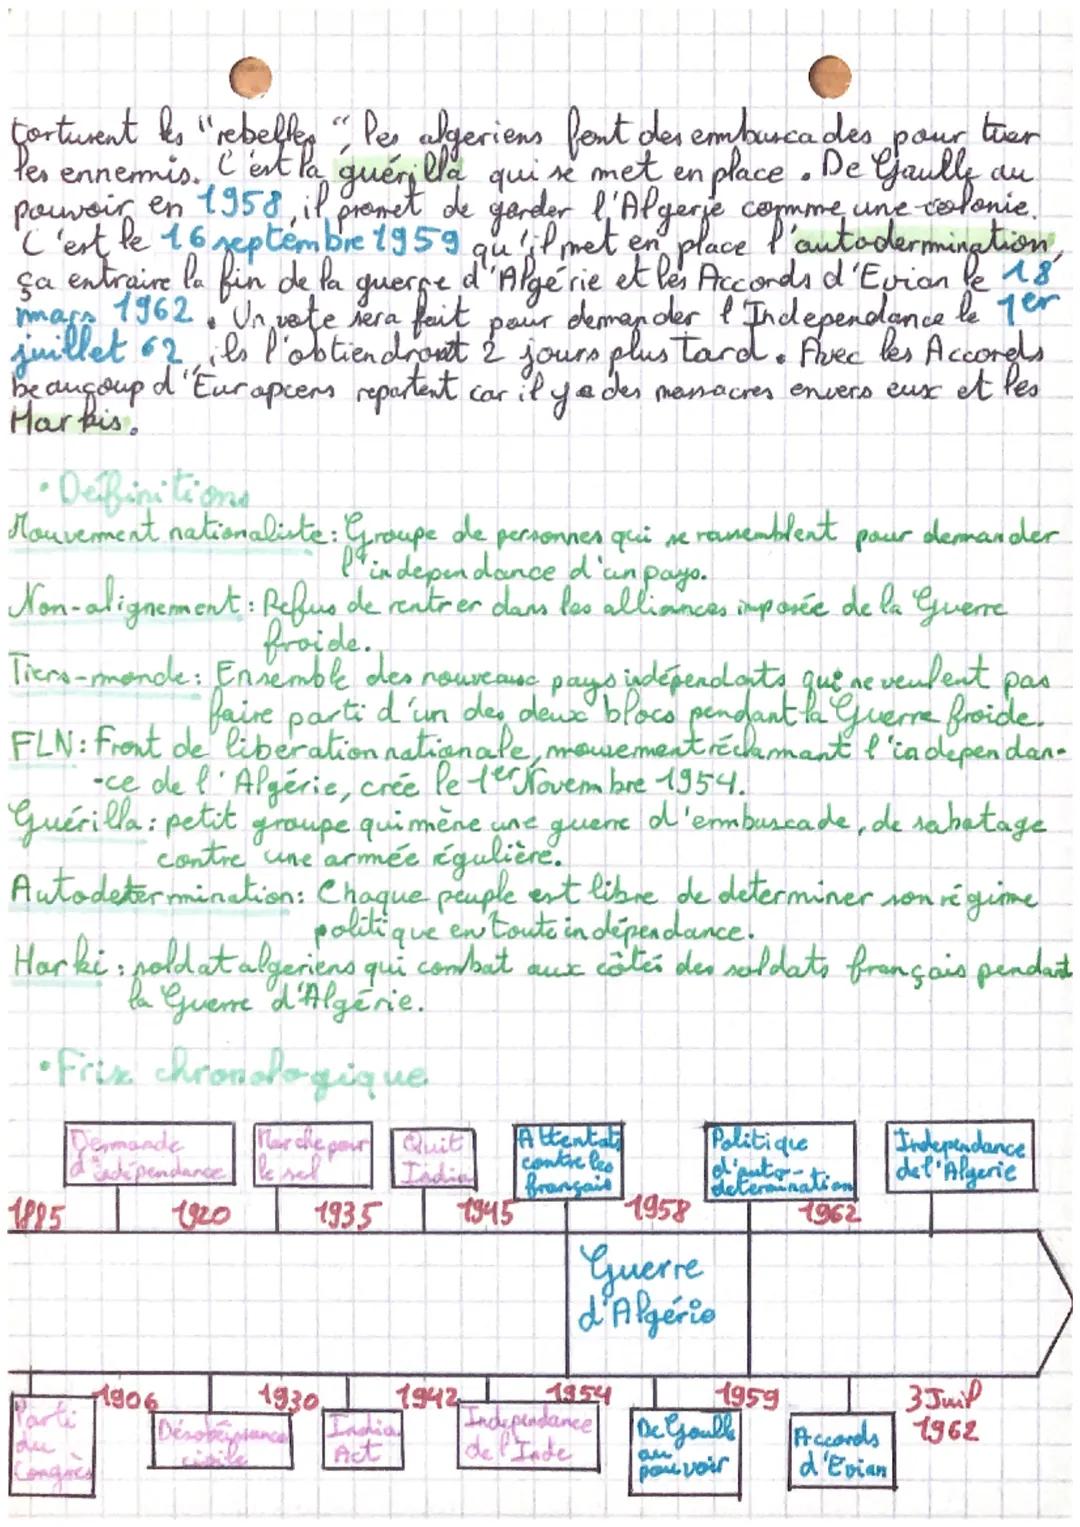 torturent les "rebelles", les algeriens font des embuscades pour tuer
les ennemis. C'est la guérilla qui se met en place. De Gaulle au
pouvoir en 1958, il promet de garder l'Algerie comme une colonie.
C'est le 16 septembre 1959 qu'il met en place l'autodermination,
ça entraire la fin de la guerre d'Algérie et les Accords d'Evian le 18
mars 1962. Un vote sera fait pour demander l'Independance le 1er
juillet 62, ils l'obtiendront 2 jours plus tard. Avec les Accords
beaucoup d'Europeens repartent car il y a des massacres envers eux et les
Harkis.
• Définitions
Mouvement nationaliste: Groupe de personnes qui se rassemblent pour demander
l'independance d'un pays.
Non-alignement: Refus de rentrer dans les alliances imposée de la Guerre
froide.
Tiers-monde: Ensemble des nouveaux pays indépendants qui ne veulent pas
faire parti d'un des deux blocs pendant la Guerre froide.
FLN: Front de liberation nationale, mouvement réclamant l'independan-
-ce de l'Algérie, crée le 1er Novembre 1954.
Guérilla: petit groupe qui mène une guerre d'embuscade, de sabotage
contre une armée régulière.
Autodetermination: Chaque peuple est libre de determiner son régime
politique en toute indépendance.
Harki: soldat algeriens qui combat aux côtés des soldats français pendant
la Guerre d'Algérie.
• Frise chronologique
Demande
d'indépendance
Marche pour
le sel
Quit
India
Attentats
contre les
français
Politique
d'auto-
determination
Independance
de l'Algerie
1885 1920 1935 1945 1958 1962
Guerre
d'Algérie
1906 1930 1942 1954 1959 3 Juil
1962
Parti
du
Congrès
Désobéissance
civile
India
Act
Independance
de l'Inde
De Gaulle
au
pouvoir
Accords
d'Evian